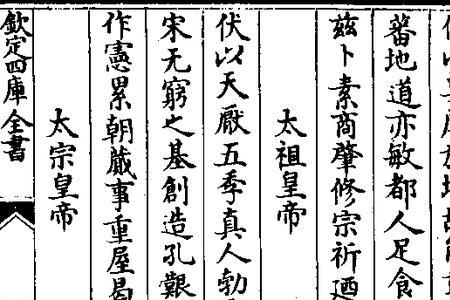 蕃地道亦敏都人足食
茲卜素商肇修宗祈迺
太祖皇帝
伏以天厭五季真人勃
宋无窮之基創造孔艱
作憲累朝蕆事重屋曷
太宗皇帝
欽定四庫全書